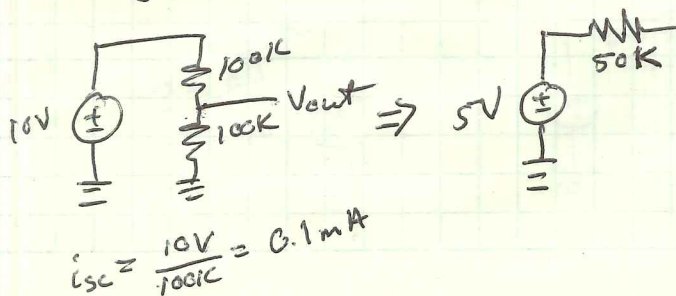 10V
100K
Vout
100K
⇒
5V
50K
isc = 10V/100K = 0.1mA